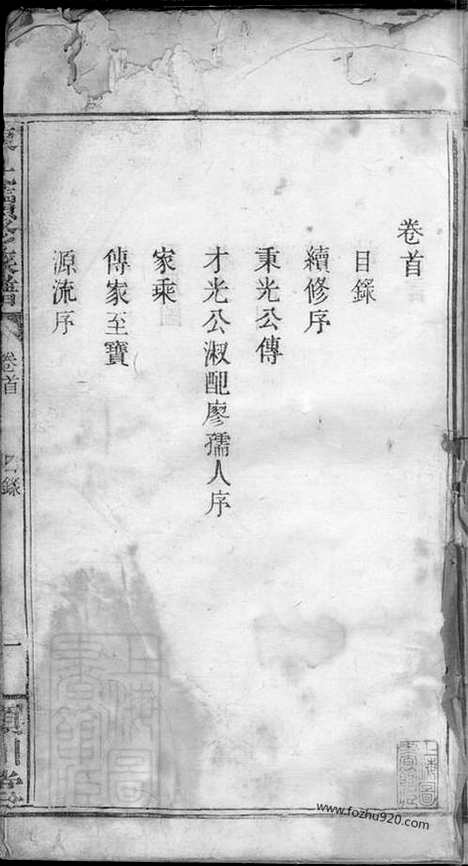 卷首
目錄
續修序
秉光公傳
才光公淑配廖孺人序
家乘
傳家至寶
源流序
卷首
目錄
一
潁川堂
上海圖書館藏
www.fozhu920.com